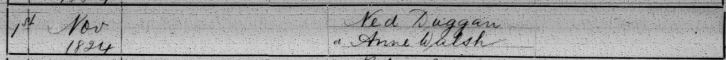 1st Nov Ned Duggan
1824 " Anne Walsh